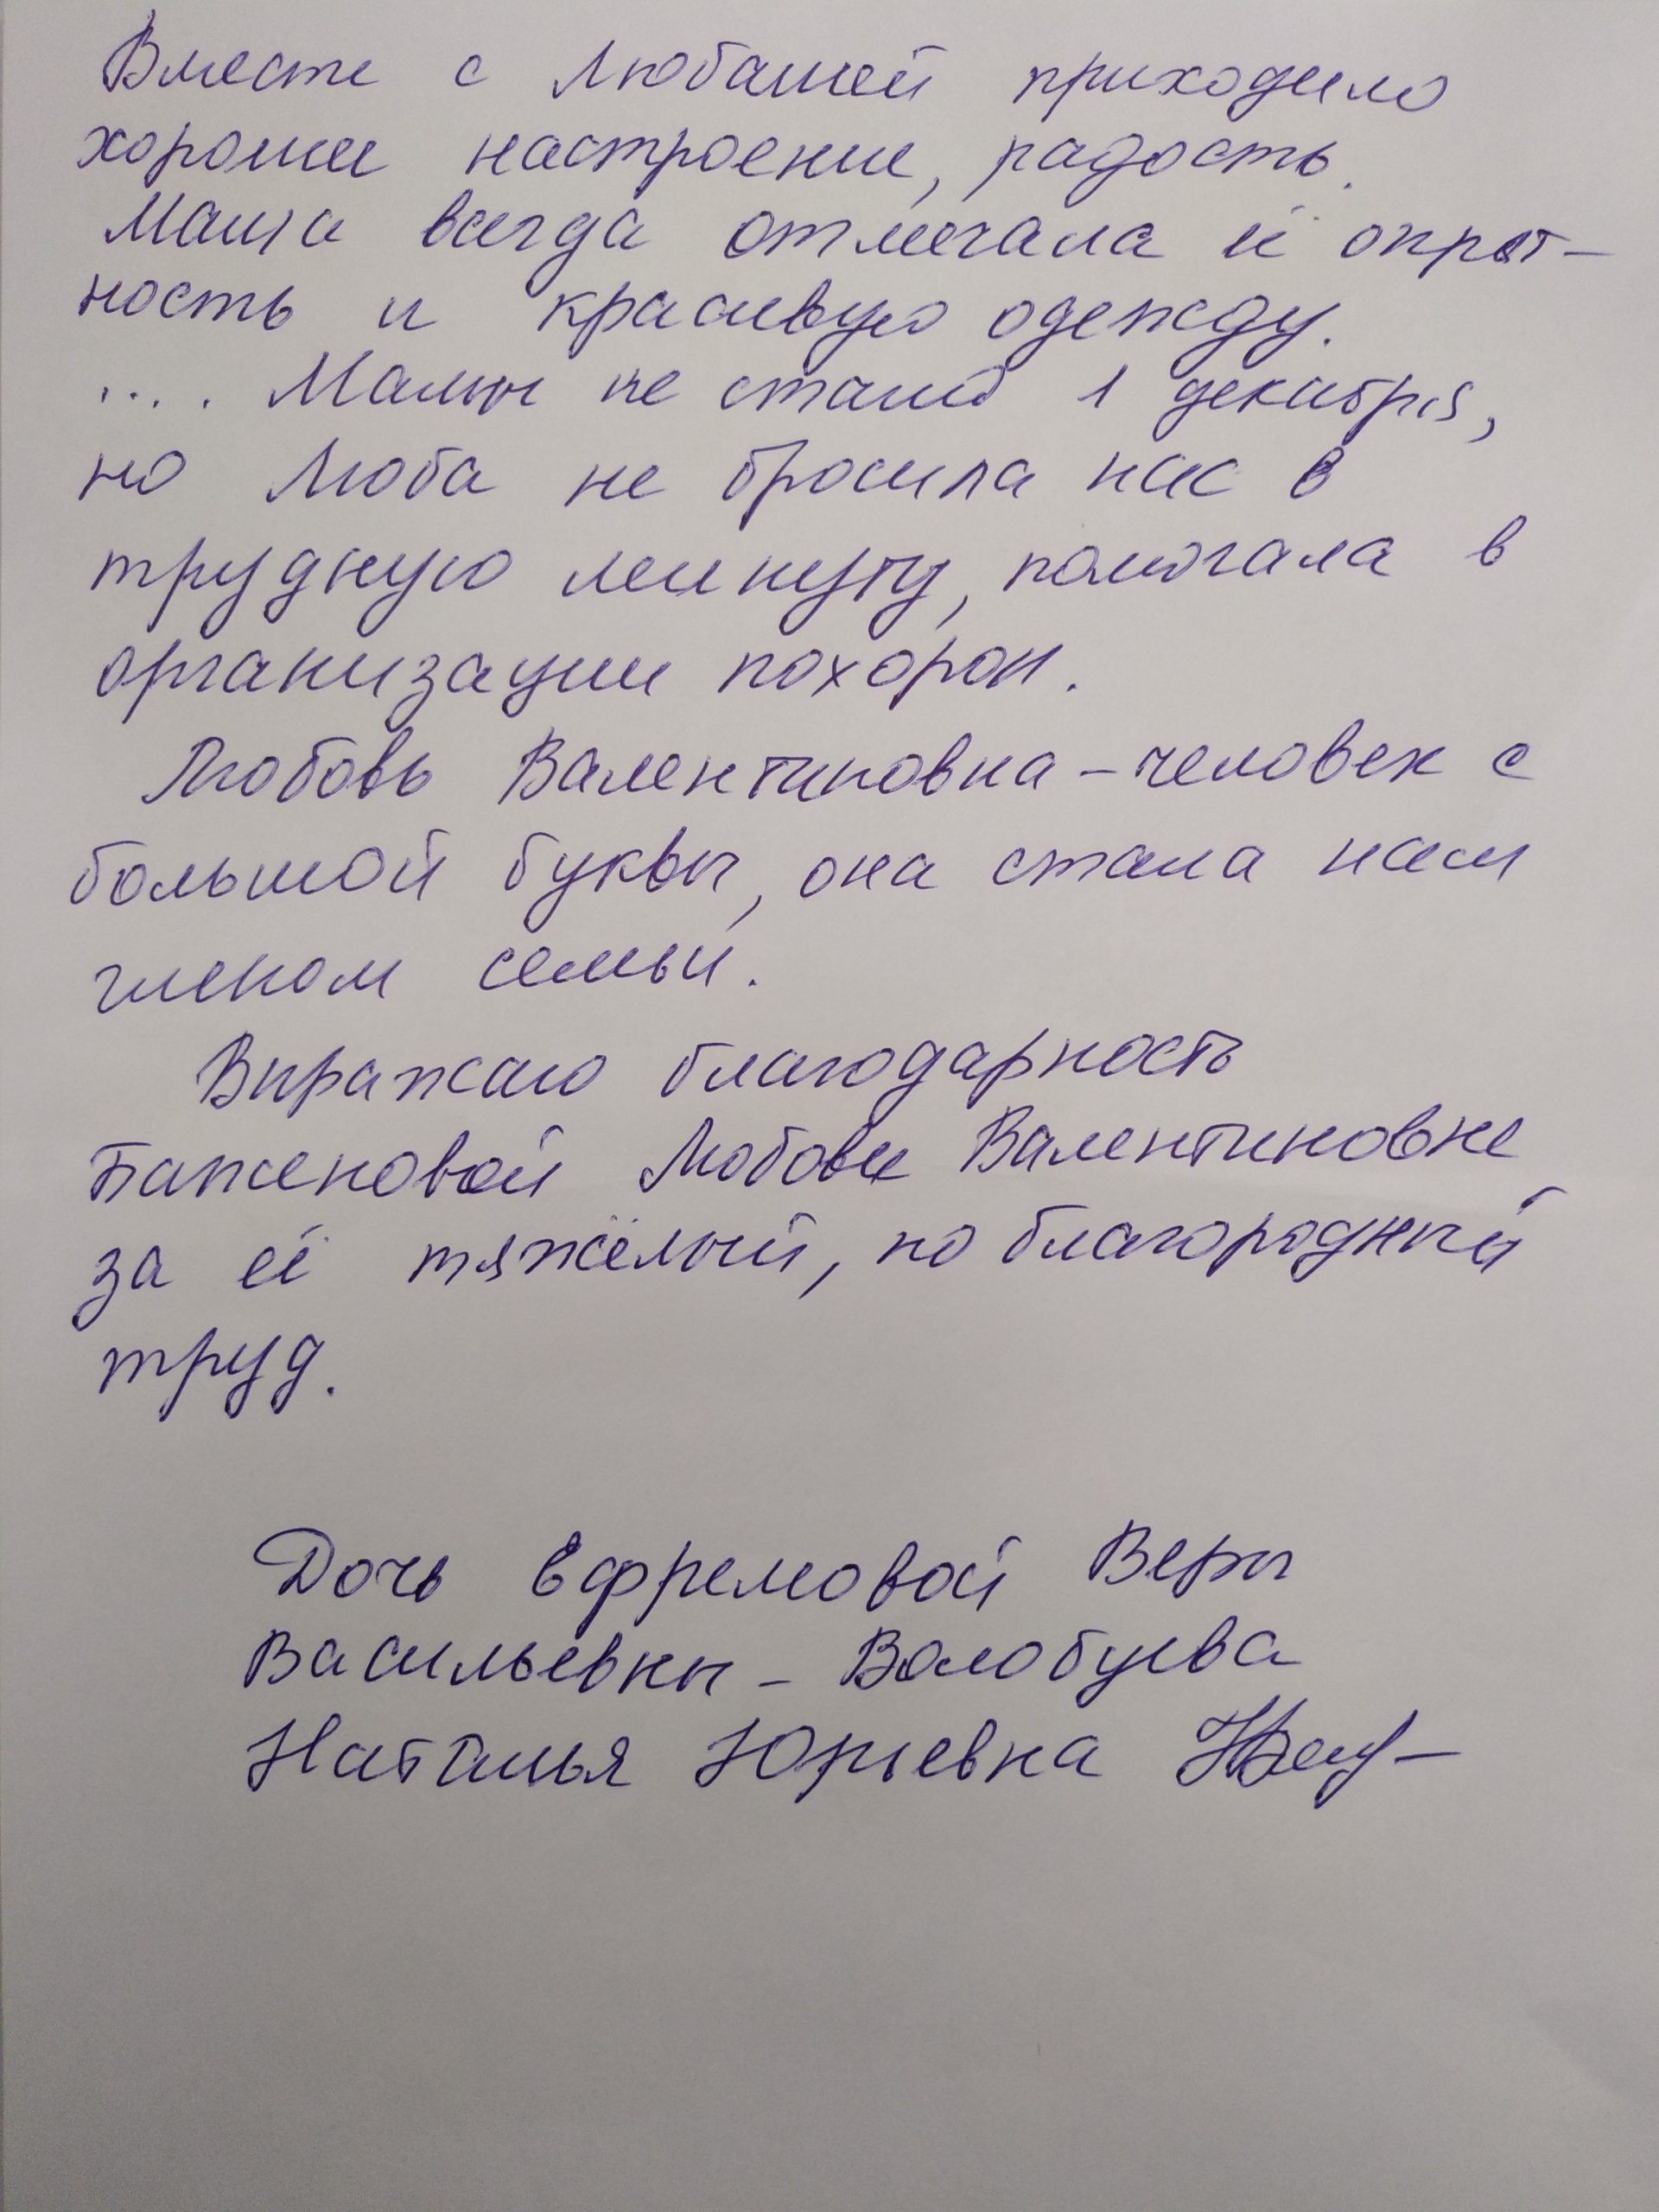 Вместе с Любашей приходило
хорошее настроение, радость.
Мама всегда отмечала её опрят-
ность и красивую одежду.
.... Мамы не стало 1 декабря,
но Люба не бросила нас в
трудную минуту, помогала в
организации похорон.
Любовь Валентиновна - человек с
большой буквы, она стала нам
членом семьи.
Выражаю благодарность
Баженовой Любови Валентиновне
за её тяжёлый, но благородный
труд.
Дочь Ефремовой Веры
Васильевны - Волобуева
Наталья Юрьевна